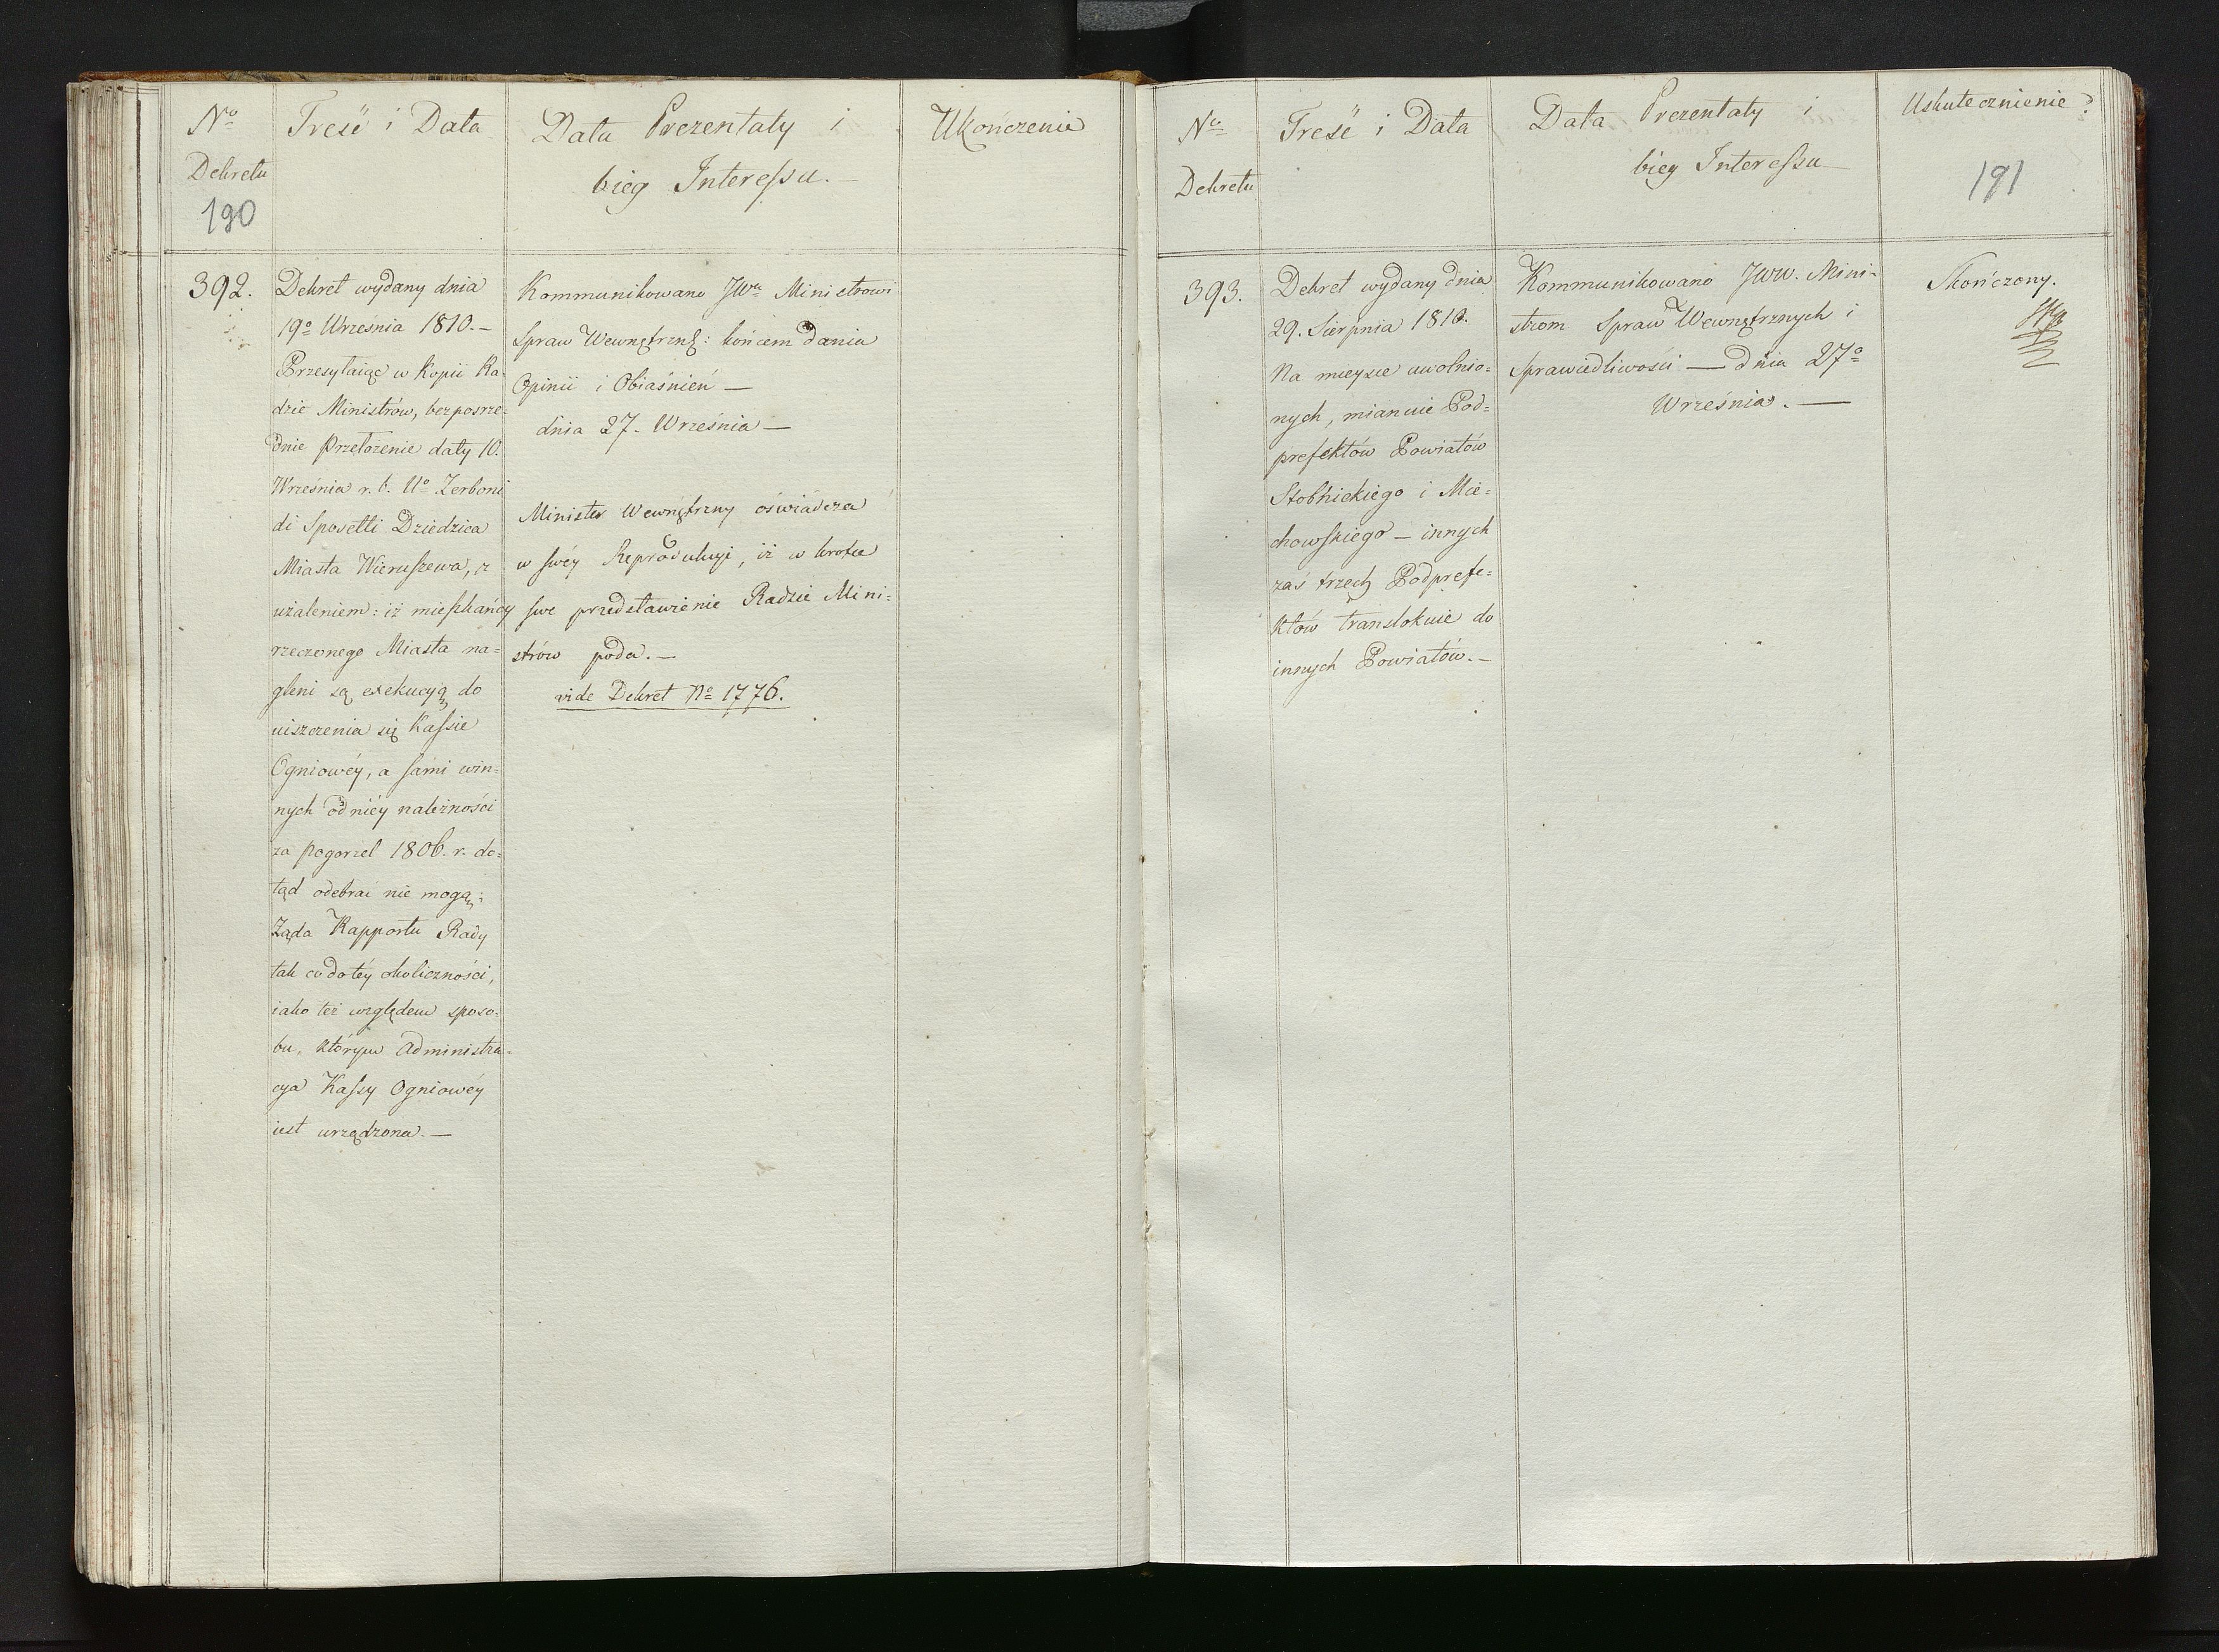 No
Dekretu
190
Treść i Data
Data Prezentaty i
bieg Interessu. —
Ukończenie
392.
Dekret wydany dnia
19o Września 1810. —
Przesyłaiąc w Kopii Ra=
dzie Ministrów, bezposrze=
dnie przełożenie daty 10.
Września r. b. Uo Zerboni
di Sposetti Dziedzica
Miasta Wieruszewa, z
użaleniem: iż mieszkańcy
rzeczonego Miasta na=
gleni są exekucyą do
uiszczenia się Kassie
Ogniowéy, a sami win=
nych od niéy należności
za pogorzel 1806. r. do=
tąd odebrać nie mogą;
Żąda Rapportu Rady
tak co do téy okoliczności,
iako też względem sposo=
bu, którym Administra=
cya Kassy Ogniowéy
iest urządzona. —
Kommunikowano JWu Ministrowi
Spraw Wewnętrzn: końcem dania
Opinii i Obiaśnień —
dnia 27. Września —
Minister Wewnętrzny oświadcza
w swéy Reprodukcyi, iż w krotce
swe przedstawienie Radzie Mini=
strów poda. —
vide Dekret No 1776.
No
Dekretu
Treść i Data
Data Prezentaty i
bieg Interessu
Uskutecznienie
191
393.
Dekret wydany dnia
29. Sierpnia 1810.
Na mieysce uwolnio=
nych, mianuie Pod=
prefektów Powiatów
Stobnickiego i Mie=
chowskiego — innych
zaś trzech Podprefe=
któw translokuie do
innych Powiatów. —
Kommunikowano JWW. Mini=
strom Spraw Wewnętrznych i
Sprawiedliwości — dnia 27o
Września. —
Skończony.